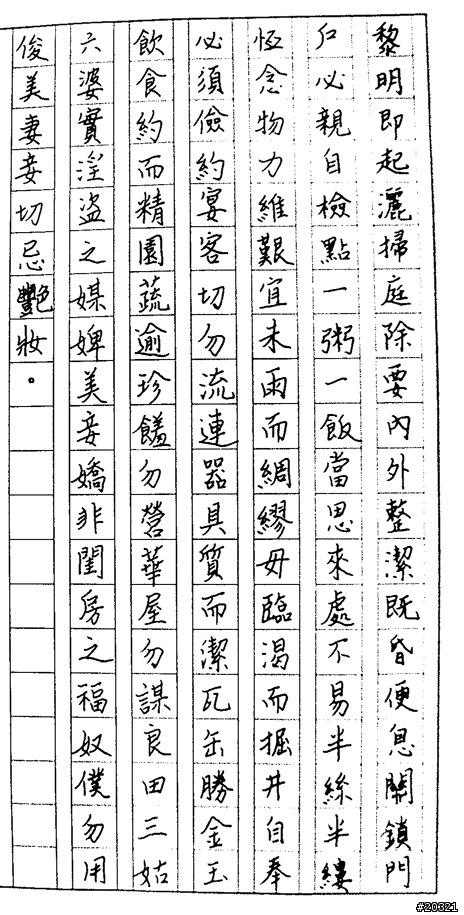 黎明即起灑掃庭除要內外整潔既昏便息關鎖門
戶必親自檢點一粥一飯當思來處不易半絲半縷
恆念物力維艱宜未雨而綢繆毋臨渴而掘井自奉
必須儉約宴客切勿流連器具質而潔瓦缶勝金玉
飲食約而精園蔬逾珍饈勿營華屋勿謀良田三姑
六婆實淫盜之媒婢美妾嬌非閨房之福奴僕勿用
俊美妻妾切忌艷妝。
#20321